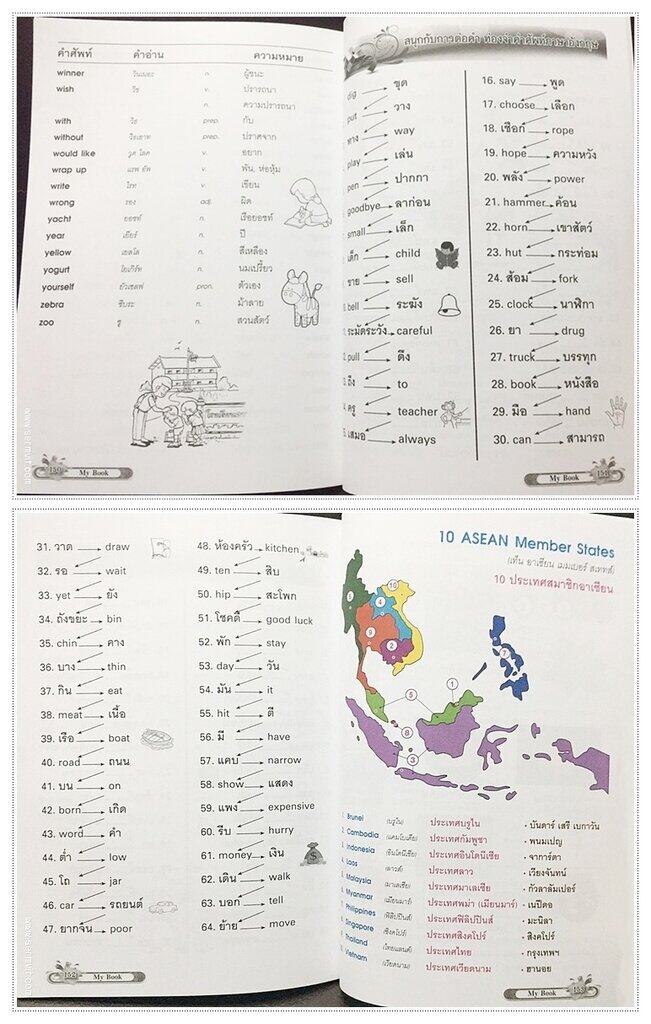 คำศัพท์ คำอ่าน ความหมาย
winner วินเนอะ n. ผู้ชนะ
wish วิช v. ปรารถนา
n. ความปรารถนา
with วิธ prep. กับ
without วิธเอาท prep. ปราศจาก
would like วุด ไลค v. อยาก
wrap up แรพ อัพ v. พัน, ห่อหุ้ม
write ไรท v. เขียน
wrong รอง adj. ผิด
yacht ยอชท์ n. เรือยอชท์
year เยียร์ n. ปี
yellow เยลโล n. สีเหลือง
yogurt โยเกิร์ท n. นมเปรี้ยว
yourself ยัวเซลฟ pron. ตัวเอง
zebra ซีบระ n. ม้าลาย
zoo ซู n. สวนสัตว์
150 My Book
www.sermvit.com
สนุกกับการต่อคำ ท่องจำคำศัพท์ภาษาอังกฤษ
dig ขุด
put วาง
ทาง way
play เล่น
pen ปากกา
goodbye ลาก่อน
small เล็ก
เด็ก child
ขาย sell
bell ระฆัง
ระมัดระวัง careful
pull ดึง
ถึง to
ครู teacher
เสมอ always
16. say พูด
17. choose เลือก
18. เชือก rope
19. hope ความหวัง
20. พลัง power
21. hammer ค้อน
22. horn เขาสัตว์
23. hut กระท่อม
24. ส้อม fork
25. clock นาฬิกา
26. ยา drug
27. truck บรรทุก
28. book หนังสือ
29. มือ hand
30. can สามารถ
My Book 151
31. วาด draw
32. รอ wait
33. yet ยัง
34. ถังขยะ bin
35. chin คาง
36. บาง thin
37. กิน eat
38. meat เนื้อ
39. เรือ boat
40. road ถนน
41. บน on
42. born เกิด
43. word คำ
44. ต่ำ low
45. โถ jar
46. car รถยนต์
47. ยากจน poor
48. ห้องครัว kitchen
49. ten สิบ
50. hip สะโพก
51. โชคดี good luck
52. พัก stay
53. day วัน
54. มัน it
55. hit ตี
56. มี have
57. แคบ narrow
58. show แสดง
59. แพง expensive
60. รีบ hurry
61. money เงิน
62. เดิน walk
63. บอก tell
64. ย้าย move
152 My Book
www.sermvit.com
10 ASEAN Member States
(เท็น อาเซียน เมมเบอร์ สเททส์)
10 ประเทศสมาชิกอาเซียน
10
4
9
2
7
1
5
8
3
Brunei (บรูไน) ประเทศบรูไน • บันดาร์ เสรี เบกาวัน
Cambodia (แคมโบเดีย) ประเทศกัมพูชา • พนมเปญ
Indonesia (อินโดนีเซีย) ประเทศอินโดนีเซีย • จาการ์ตา
Laos (ลาวส์) ประเทศลาว • เวียงจันทน์
Malaysia (มาเลเซีย) ประเทศมาเลเซีย • กัวลาลัมเปอร์
Myanmar (เมียนมาร์) ประเทศพม่า (เมียนมาร์) • เนปีดอ
Philippines (ฟิลิปปินส์) ประเทศฟิลิปปินส์ • มะนิลา
Singapore (สิงคโปร์) ประเทศสิงคโปร์ • สิงคโปร์
Thailand (ไทยแลนด์) ประเทศไทย • กรุงเทพฯ
Vietnam (เวียดนาม) ประเทศเวียดนาม • ฮานอย
My Book 153